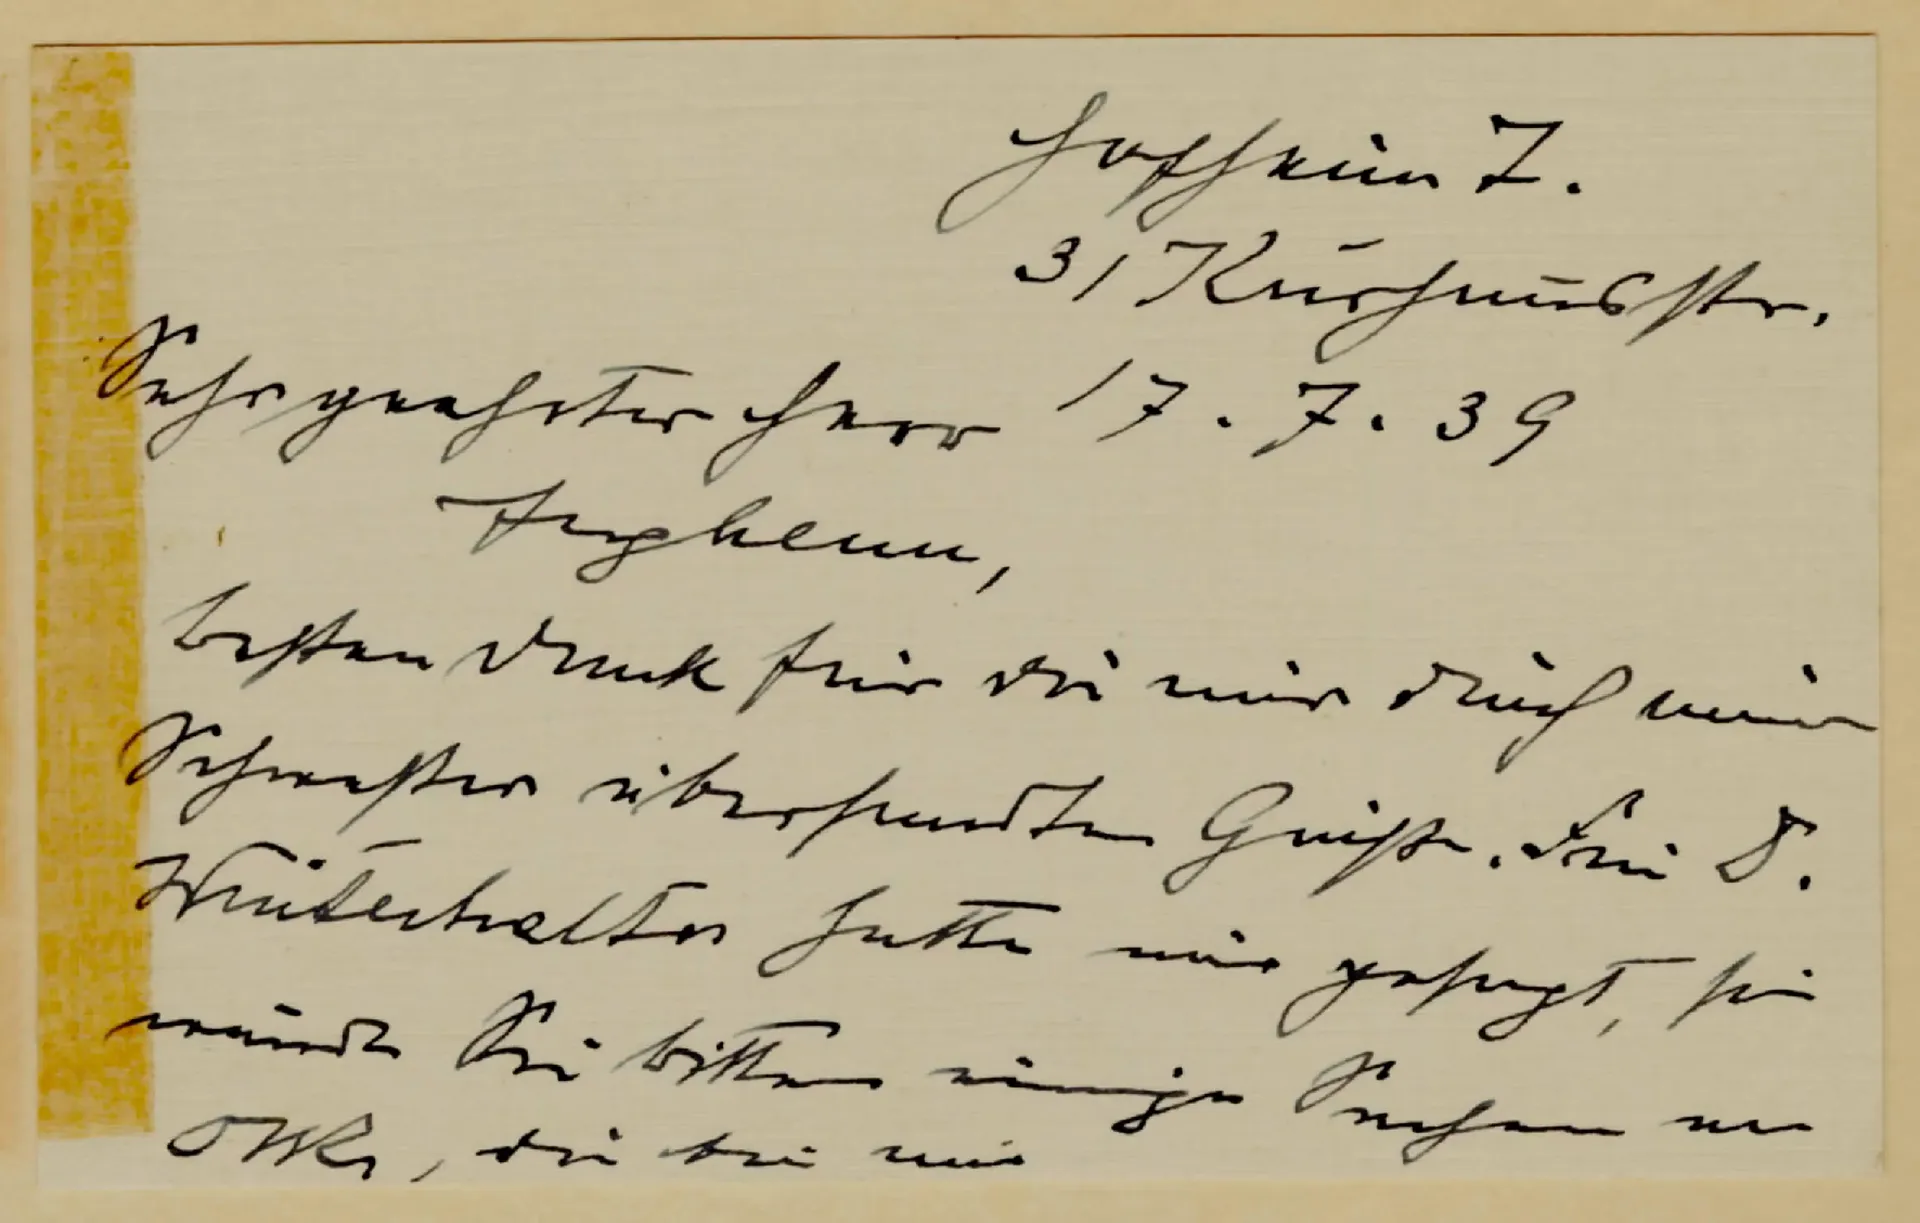 Hofheim T.
31 Kurhausstr.
Sehr geehrter Herr 17.7.39
Jughenn,
besten Dank für die mir durch meine
Schwester übersandten Grüße. D.
Winterhalter hatte mir gesagt, sie
würde Sie bitten einige Sachen von
OWR, die bei mir